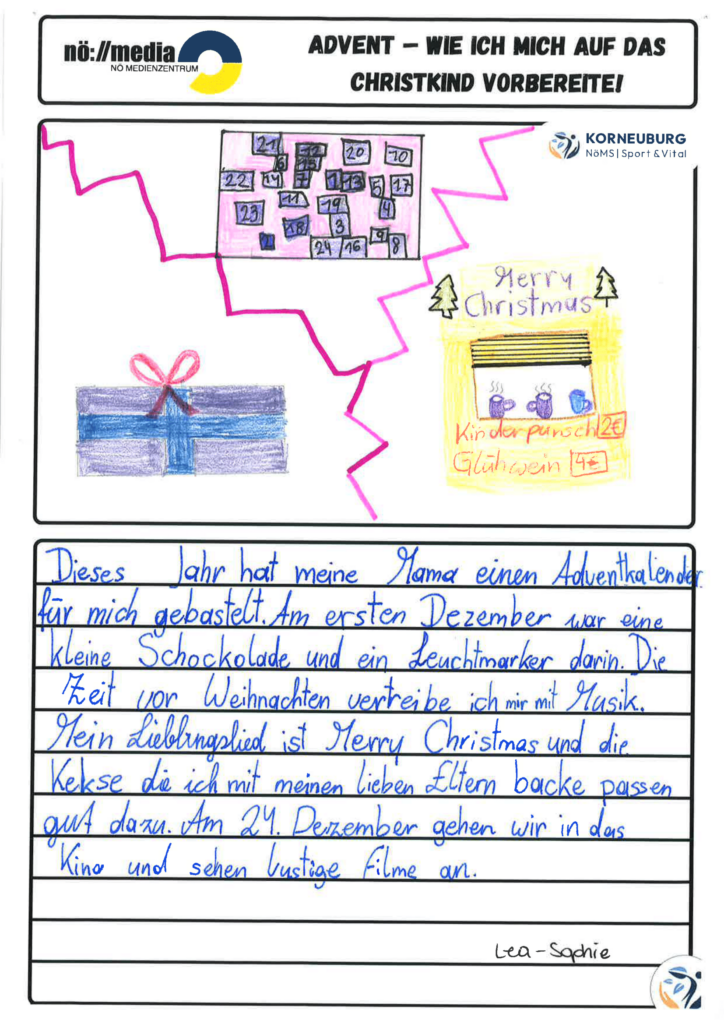 nö://media
NÖ MEDIENZENTRUM
ADVENT – WIE ICH MICH AUF DAS
CHRISTKIND VORBEREITE!
KORNEUBURG
NöMS | Sport & Vital
21 12 20 10
6 15
22 14 7 1 13 5 17
11 19 4
23 18 3 9
2 24 16 8
Merry
Christmas
Kinderpunsch 2€
Glühwein 4€
Dieses Jahr hat meine Mama einen Adventkalender
für mich gebastelt. Am ersten Dezember war eine
kleine Schockolade und ein Leuchtmarker darin. Die
Zeit vor Weihnachten vertreibe ich mir mit Musik.
Mein Lieblingslied ist Merry Christmas und die
Kekse die ich mit meinen lieben Eltern backe passen
gut dazu. Am 24. Dezember gehen wir in das
Kino und sehen lustige Filme an.
Lea-Sophie